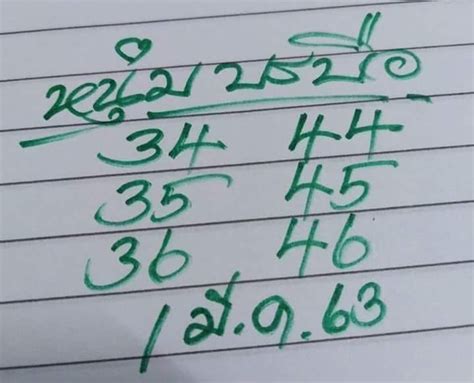 หนุ่มบรบือ
34 44
35 45
36 46
1 มี.ค.63